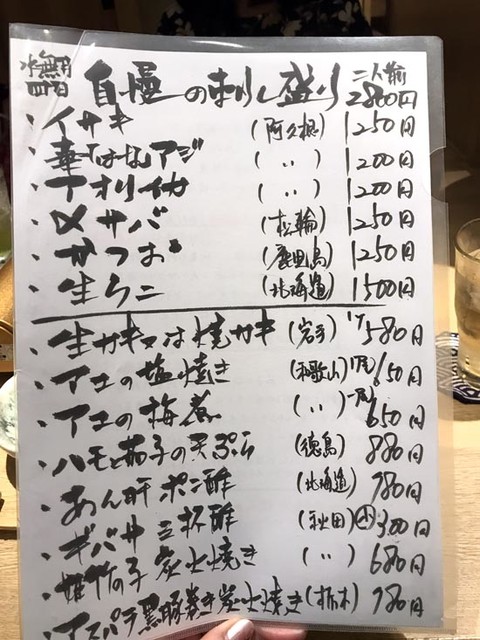 水無月
四日
自慢の刺し盛り 二人前 2800円
・イサキ (阿久根) 1250円
・華はなアジ (〃) 1200円
・アオリイカ (〃) 1200円
・〆サバ (松輪) 1250円
・かつお (鹿児島) 1250円
・生うに (北海道) 1500円
・生ガキ又は焼ガキ (岩手) 1ケ 580円
・アユの塩焼き (和歌山) 1尾 650円
・アユの梅煮 (〃) 一尾 650円
・ハモと茄子の天ぷら (徳島) 880円
・あん肝ポン酢 (北海道) 780円
・ギバサ三杯酢 (秋田) 300円
・姫竹の子炭火焼き (〃) 680円
・アスパラ黒豚巻き炭火焼き (栃木) 780円